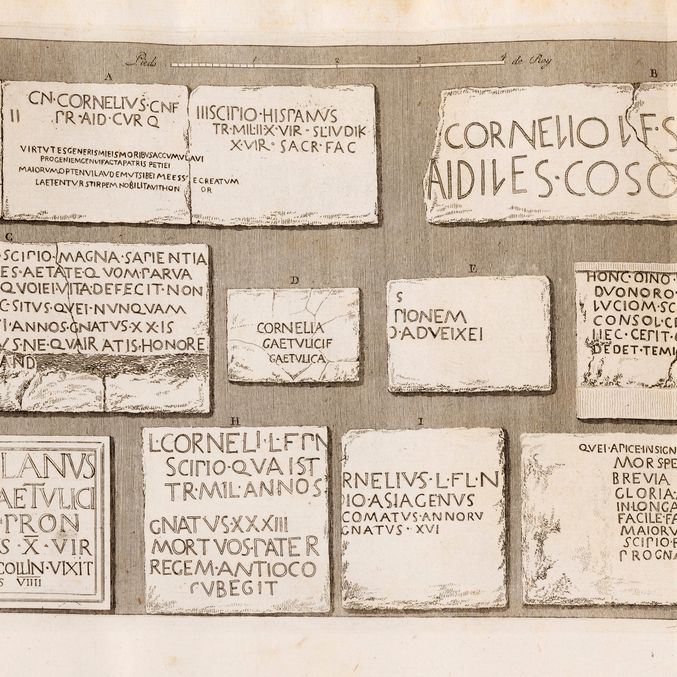 Pieds 1 2 3 4 de Roy
A
CN·CORNELIVS·CNF
PR·AID·CVRQ
VIRTVTESGENERISMIEISMORIBVSACCVMVLAVI
PROGENIEMGENVIFACTAPATRISPETIEI
MAIORVMOPTENVILAVDEMVTSIBEIMEESS
LAETENTVRSTIRPEMNOBILITAVITHON
SCIPIO·HISPANUS
TR·MIL·II·X·VIR·SL·IVDIK
X·VIR·SACR·FAC
ECREATUM
OR
B
CORNELIO L·F·S
AIDILES·COSO
C
SCIPIO·MAGNA·SAPIENTIA
ES·AETATE·QVOM·PARVA
QVOIEIVITA·DEFECIT·NON
C·SITVS·QVEI·NVNQVAM
I·ANNOS·GNATVS·XX·IS
VS·NE·QVAIRATIS·HONORE
AND
D
CORNELIA
GAETVLICIF
GAETVLICA
E
S
PIONEM
O·ADVEIXEI
HONC·OINO
DVONORO
LVCIOM·SC
CONSOL·CE
HEC·CEPIT
DEDET·TEMP
LANVS
AETVLICI
PRON
S·X·VIR
COLLIN·VIXIT
S VIIII
H
L·CORNELI·L·F·PN
SCIPIO·QVAIST
TR·MIL·ANNOS
GNATVS·XXXIII
MORTVOS·PATER
REGEM·ANTIOCO
SVBEGIT
I
RNELIVS·L·F·L·N
IO·ASIAGENVS
COMATVS·ANNORV
GNATVS·XVI
QVEI·APICE·INSIGN
MORSPE
BREVIA
GLORIA
IN·LONGA
FACILE·FA
MAIORV
SCIPIO·P
PROGNA